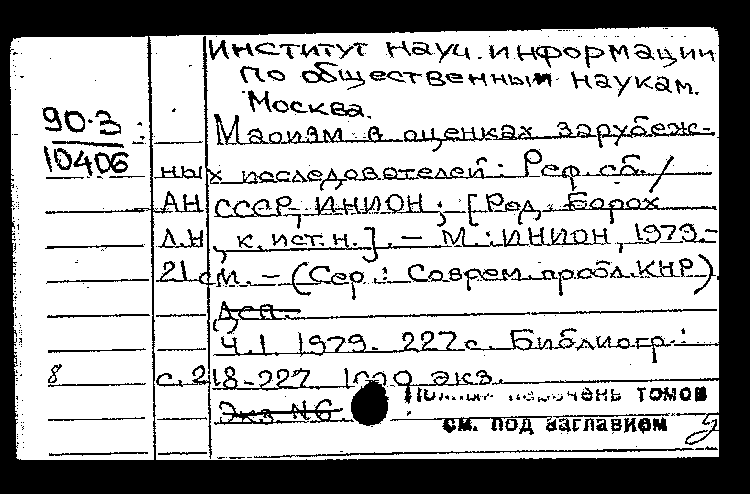 Институт науч. информации
по общественным наукам.
Москва.
90-3
10406
Маоизм в оценках зарубеж-
ных последователей: Реф. сб. /
АН СССР, ИНИОН; [Ред. Борох
Л.Н., к. ист. н.]. - М.: ИНИОН, 1979.-
21 см. - (Сер.: Соврем. пробл. КНР)
Дсп.
Ч.1. 1979. 227 с. Библиогр.:
8 с. 218-227. 1000 экз.
Экз. N6
Полный перечень томов
см. под заглавием